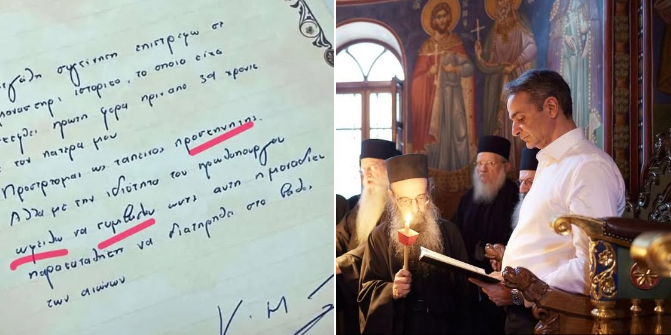 εγάλη συγκίνηση επιστρέφω σε
μοναστήρι ιστορικό, το οποίο είχα
πρώτη φορά πριν από 30 χρόνια
με τον πατέρα μου
Προσέρχομαι ως ταπεινός προσκηνητής.
Αλλά με την ιδιότητα του πρωθυπουργού
ωφείλω να συμβάλω ώστε αυτή η μοναδική
παρακαταθήκη να διατηρηθεί στο βάθος
των αιώνων
Κ. Μ